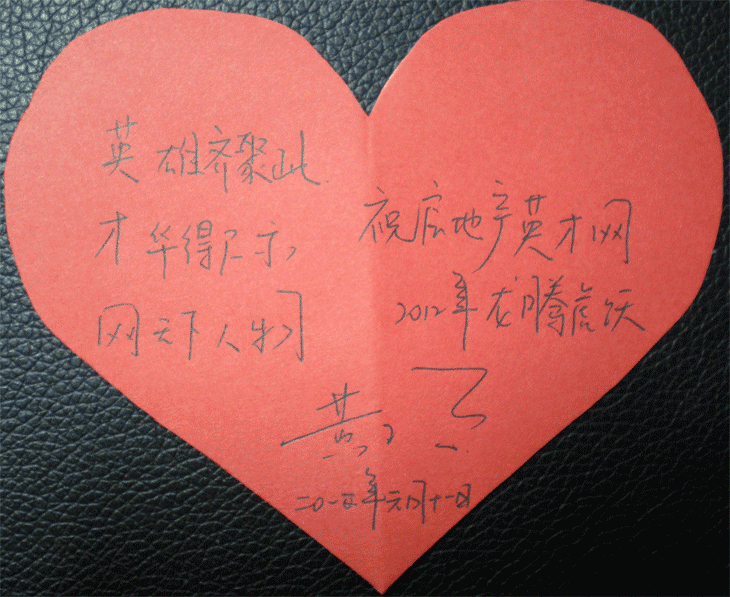 英雄齐聚此
才华得展示
网天下人物
祝房地产英才网
2012年龙腾虎跃
黄
二0一二年元月十一日